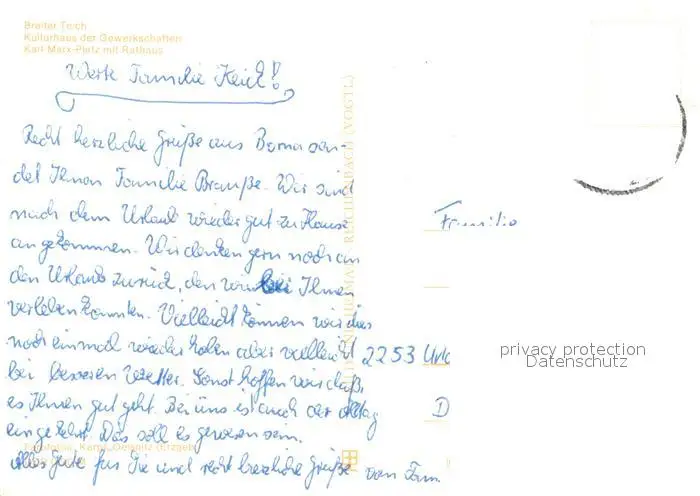 Breiter Teich
Kulturhaus der Gewerkschaften
Karl-Marx-Platz mit Rathaus
Werte Familie Keid!
Recht herzliche Grüße aus Borna sen-
det Ihnen Familie Brauße. Wir sind
nach dem Urlaub wieder gut zu Hause
angekommen. Wir denken gern noch an
den Urlaub zurück, den wir bei Ihnen
verleben konnten. Vielleicht können wir dies
noch einmal wiederholen aber vielleicht
bei besseren Wetter. Sonst hoffen wir daß
es Ihnen gut geht. Bei uns ist auch der Alltag
eingekehrt. Das soll es gewesen sein.
Alles Gute für Sie und recht herzliche Grüße von Fam.
REICHENBACH (VOGTL.)
Familie
2253
D
privacy protection
Datenschutz